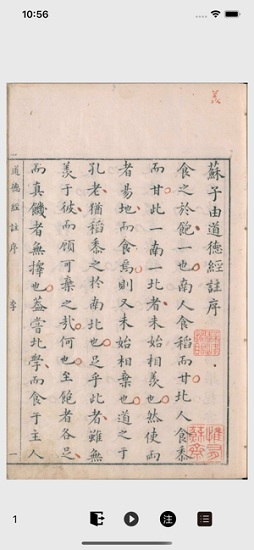 10:56
蘇子由道德經註序
食之於飽一也南人食稻而甘北人食黍
而甘此一南一北者未始相羨也然使兩
者易地而食焉則又未始相棄也道之于
孔老猶稻黍之於南北也足乎此者雖無
羨于彼而顧可棄之哉何也至飽者各足
而真饑者無擇也蓋嘗北學而食于主人
道德經註序
一
1
注